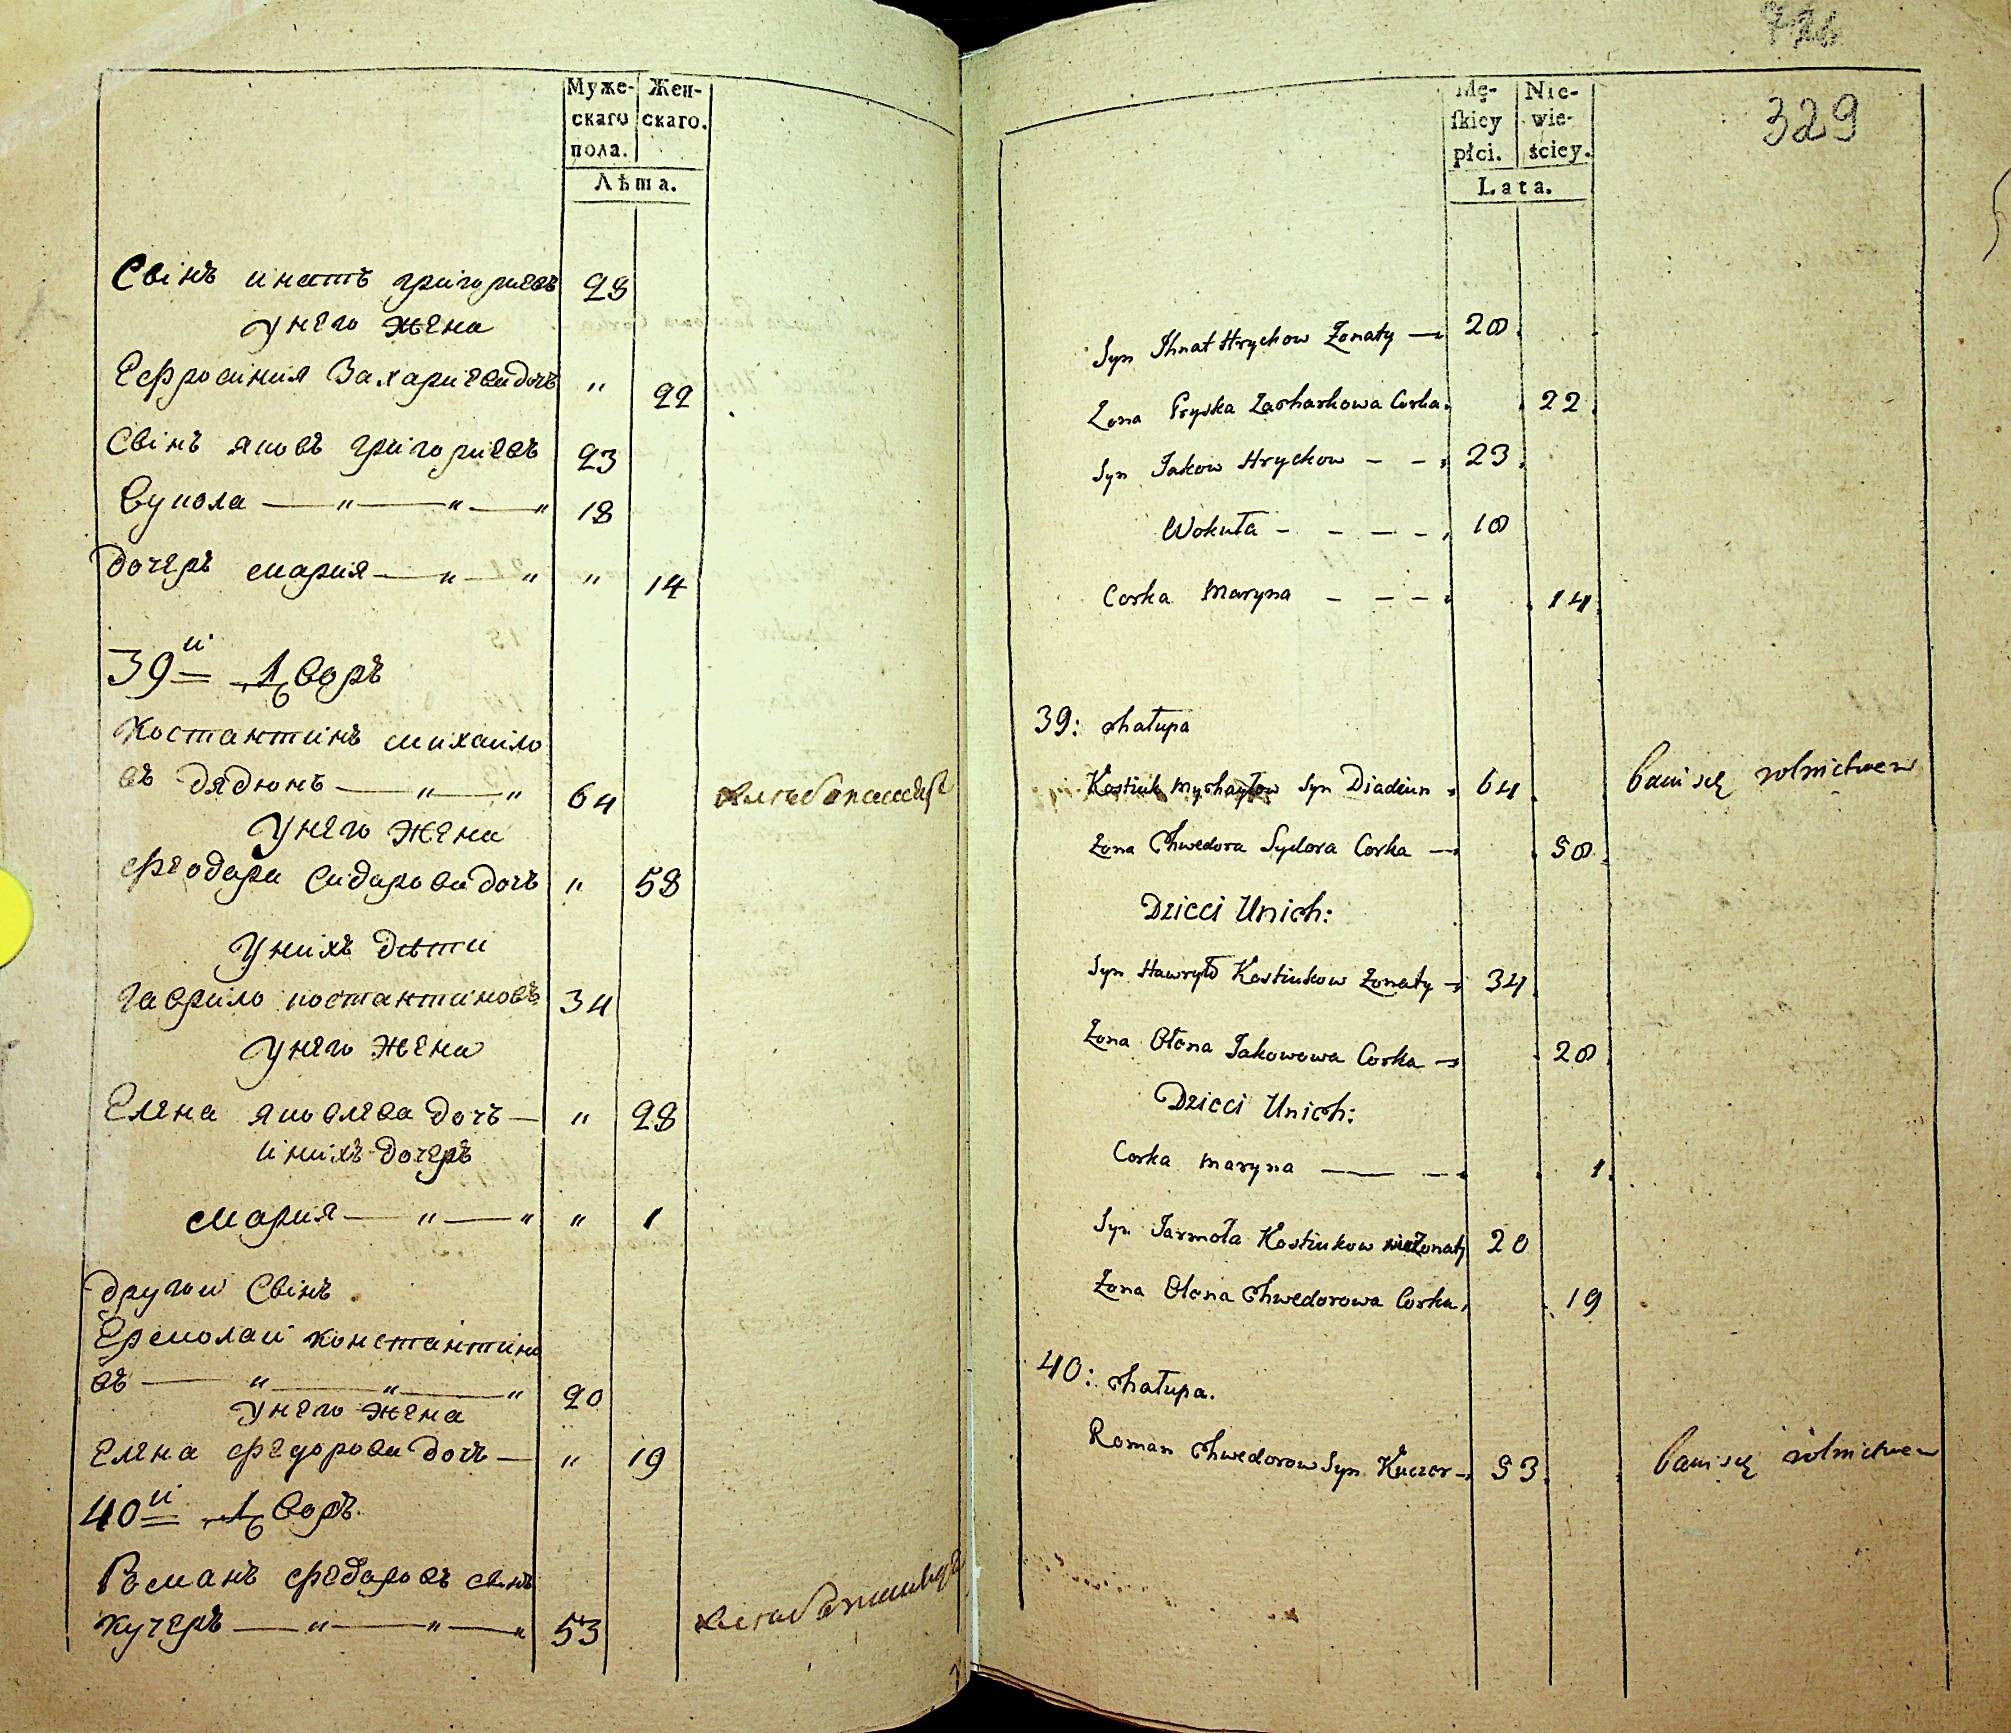 Муже- Жен-
скаго скаго.
пола.
Лѣта.
Свінъ игнатъ григориевъ 28
у него жена
Ефросиния Захариева дочъ " 22
Свінъ яковъ григориевъ 23
Вукола — " — " — " 18
дочеръ мария — " — " " 14
39й Дворъ
Костантинъ михаило
въ дядюнъ — " — " 64 хлебопашецъ
У него жена
феодора Сидорова дочъ " 58
У нихъ дѣти
Гаврило костантиновъ 34
У него жена
Елена яковлева дочъ — " 28
и нихъ дочеръ
мария — " — " " 1
другои Свінъ
Ермолаи константино
въ — " — " — " 20
У него жена
Елена федорова дочъ — " 19
40й Дворъ
Романъ федоровъ свинъ
кучеръ — " — " — " 53 хлебопашецъ
329
Mę- Nie-
ſkiey wie-
płci. ściey.
Lata.
Syn Ihnat Hrychow Żonaty — 28
Żona Pryska Zacharkowa Corka 22
Syn Jakow Hryckow - - 23
Wokuła - - - - 18
Corka Maryna - - - 14
39: Chałupa
Kostiuk Mychayłow Syn Diadiun 64 bawi się rolnictwem
Żona Chwedora Sydora Corka — 58
Dzieci Unich:
Syn Hawryło Kostiukow Żonaty — 34
Żona Ołena Jakowowa Corka — 28
Dzieci Unich:
Corka Maryna — — 1
Syn Jarmoła Kostiukow Żonaty 20
Żona Olena Chwedorowa Corka 19
40: Chałupa.
Roman Chwedorow Syn Kuczer — 53 bawi się rolnictwem